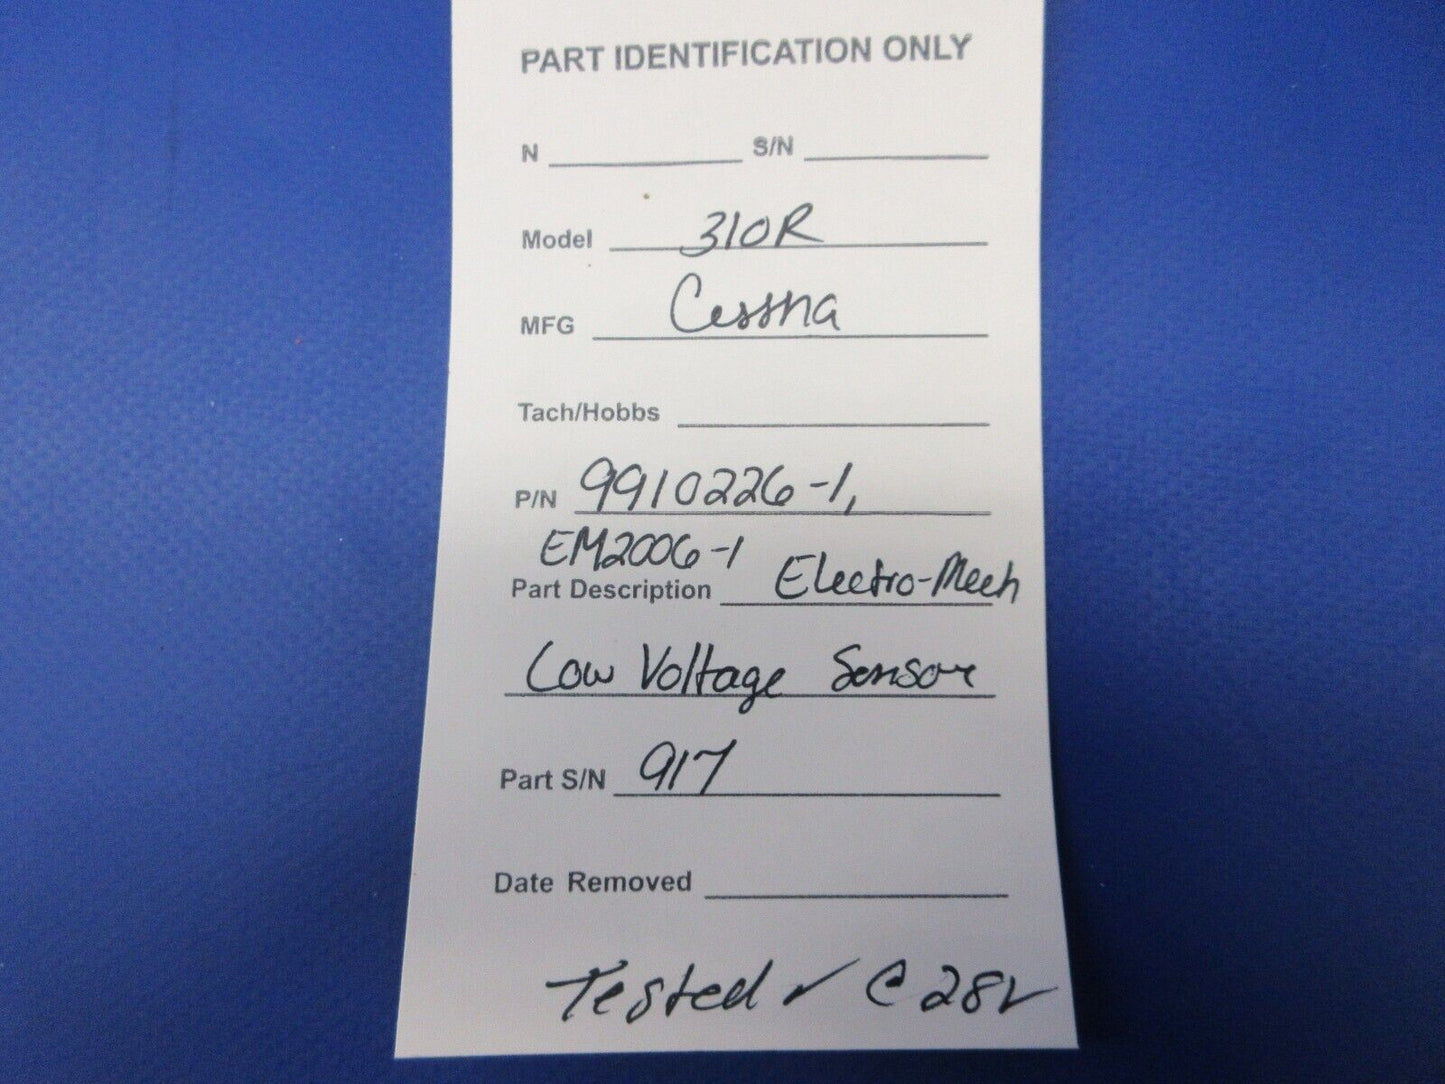 PART IDENTIFICATION ONLY
N S/N
Model 310R
MFG Cessna
Tach/Hobbs
P/N 9910226-1,
EM2006-1
Part Description Electro-Mech
Low Voltage Sensor
Part S/N 917
Date Removed
Tested ✓ @ 28V